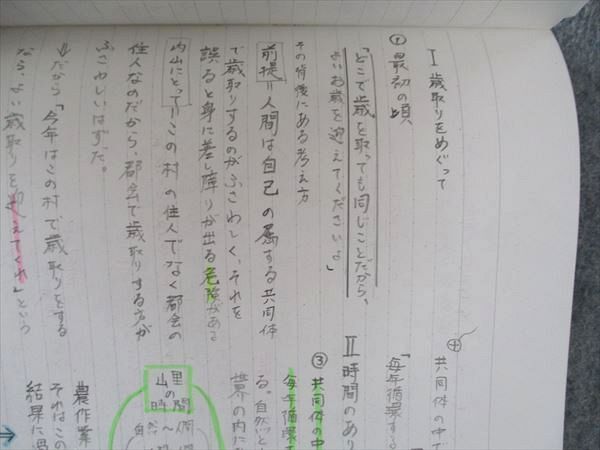 Ⅰ 歳取りをめぐって
① 最初の頃、
「どこで歳を取っても同じことだから、
よいお歳を迎えてくださいよ」
その背後にある考え方
前提=人間は自己の属する共同体
で歳取りするのがふさわしく、それを
誤ると身に差し障りが出る危険がある
内山にとって=この村の住人でなく都会の
住人なのだから、都会で歳取りする方が
ふさわしいはずだ。
⇓だから「今年はこの村で歳取りをする
なら、よい歳取りを迎えてくれ」という
共同体の中で
「毎年循環する
Ⅱ 時間のあり
③ 共同体の中
毎年循環
る。自然と
世界の内に
里の時間
山
農作業
それはこの
結果に過